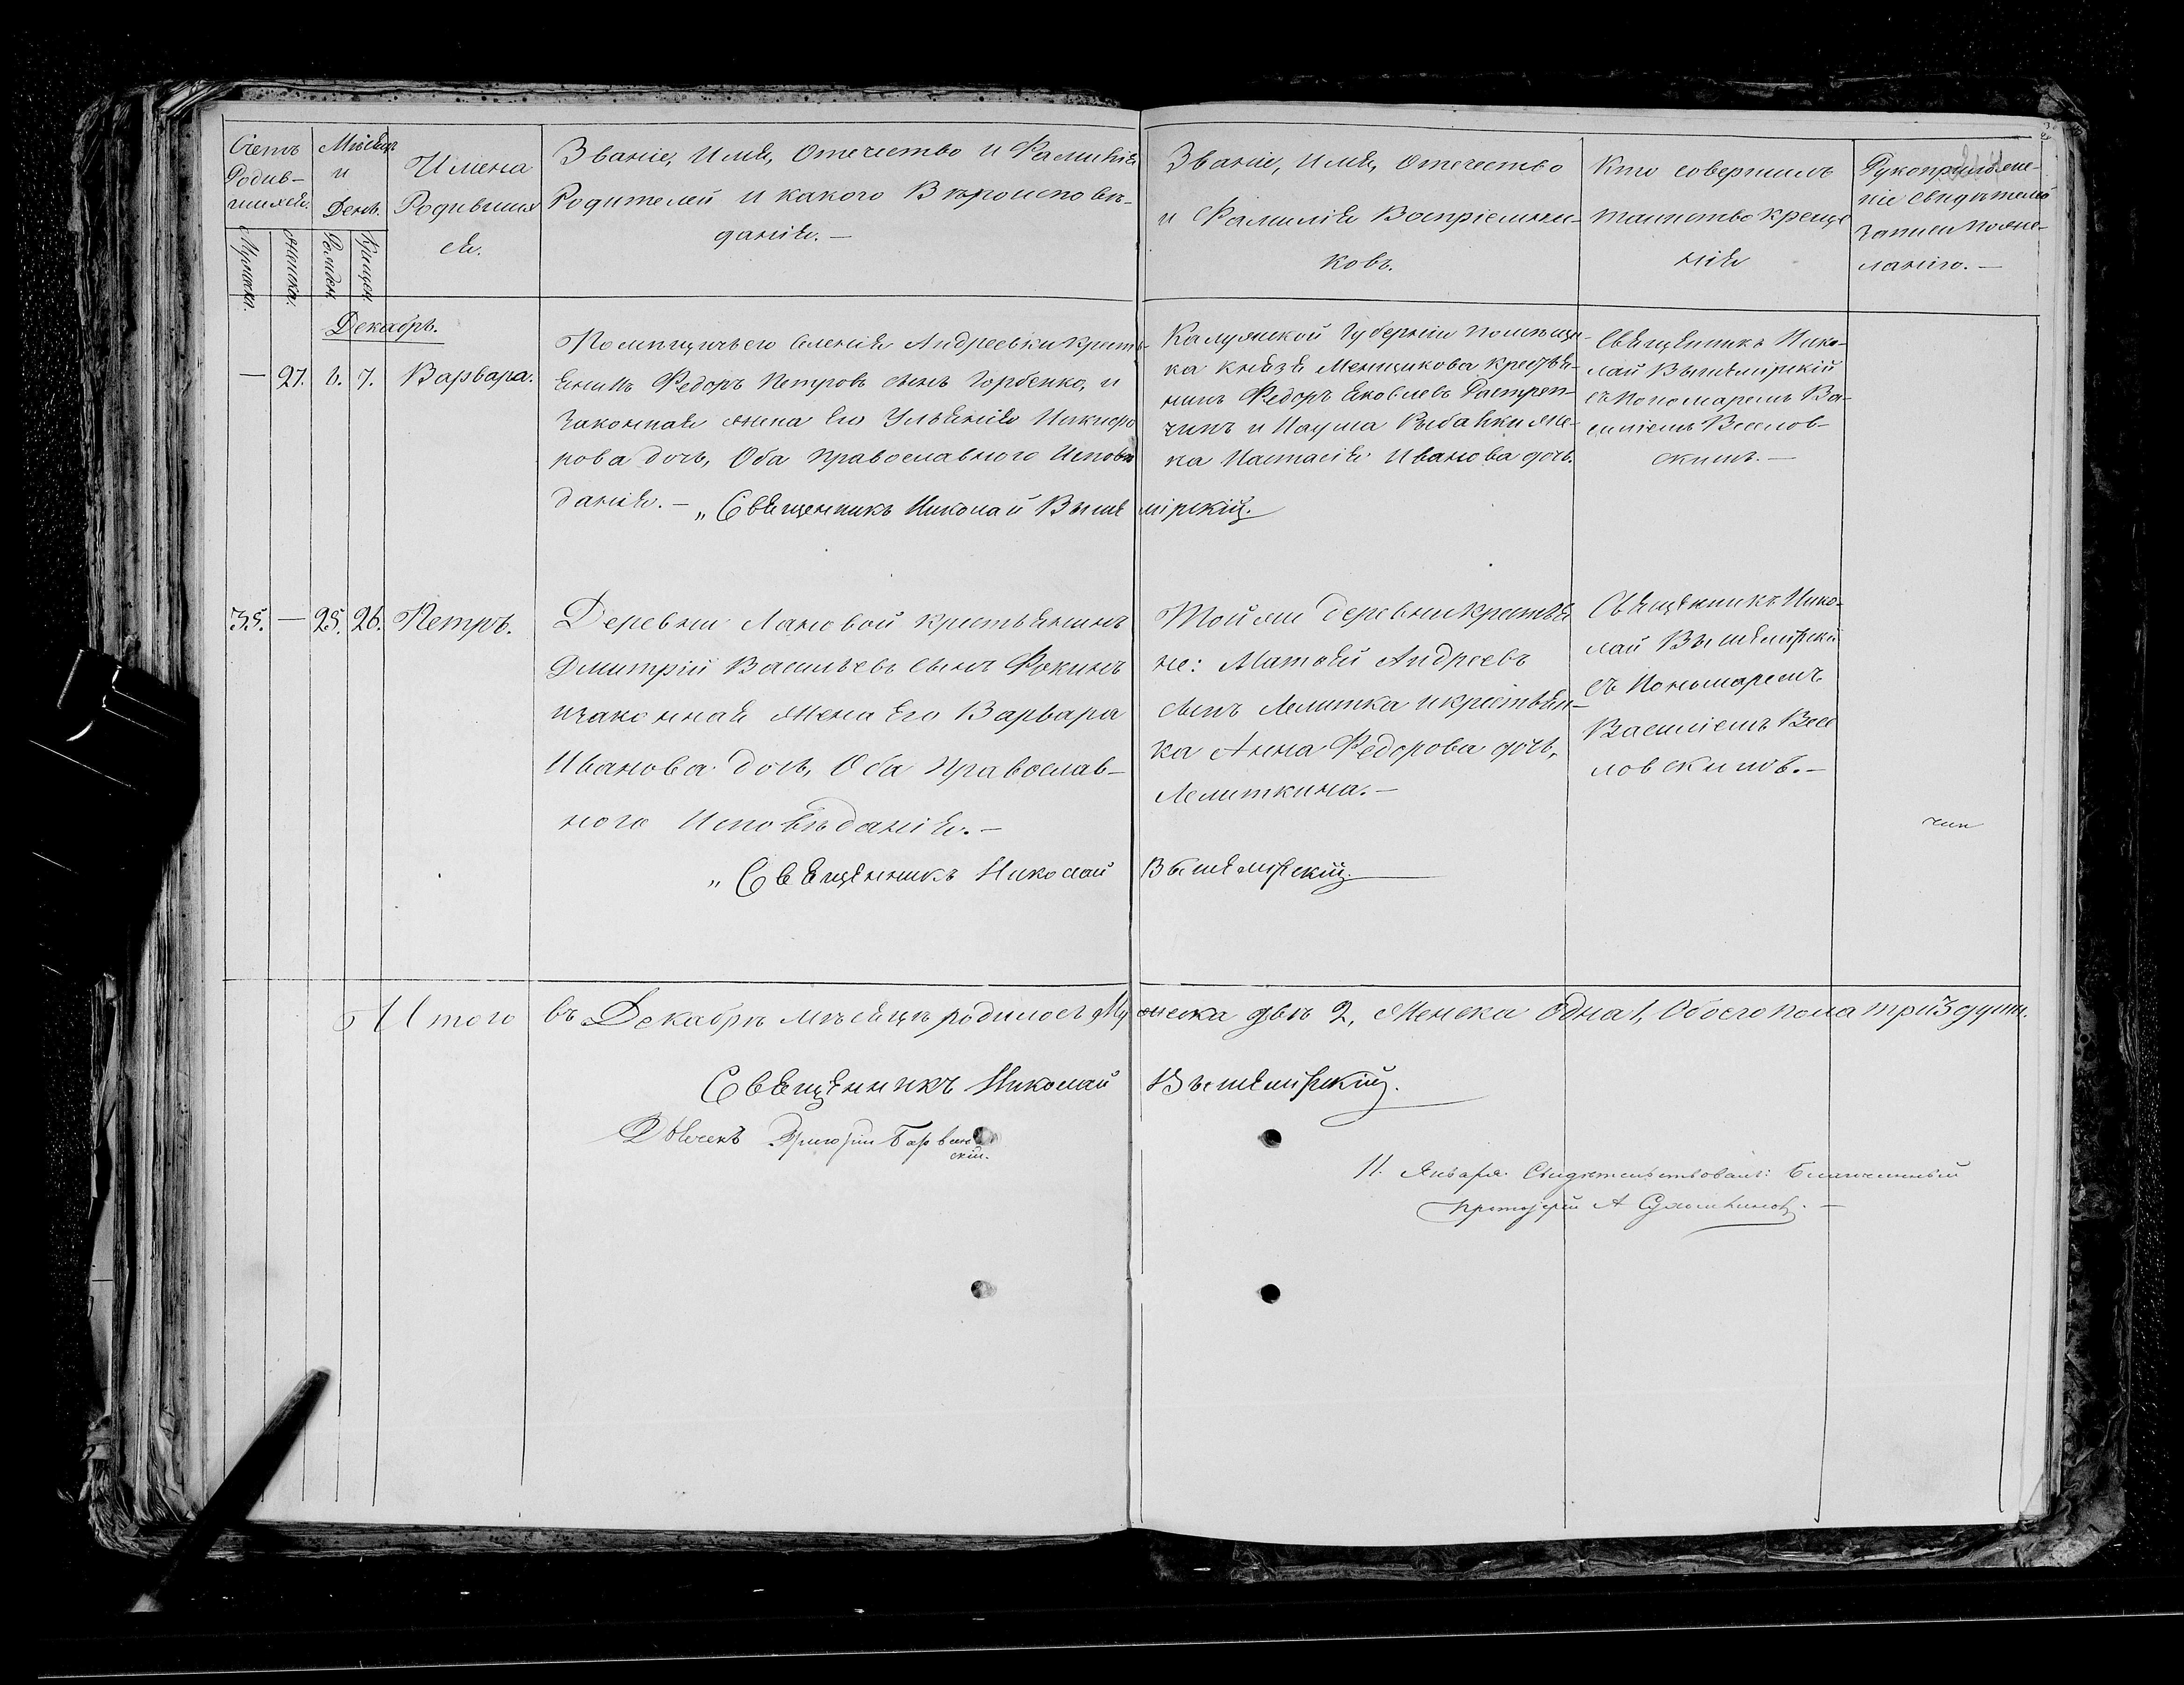 Счетъ
Родив-
шихся.
Мѣсяцъ
и
День.
Мужска.
Женска.
Рожден.
Крещен.
Имена
Родивших
ся.
Званіе, Имя, Отечество и Фамилія
Родителей и какого Вѣроисповѣ-
данія. —
Званіе, имя, отечество
и Фамилія Воспріемни-
ковъ.
Кто совершилъ
таинство креще
нія
Рукоприложе-
ніе свидѣтелей
записи по же-
ланію. —
Декабрь.
— 27. 6. 7. Варвара.
Андреевки кресть-
янинъ Федоръ Петровъ сынъ Горбенко, и
законная жена его Ульянія Никифо
рова дочь, Оба православного Исповѣ
данія. — „ Священникъ Николай Вышемірскій.
Калужской Губерніи помѣщи-
ка князя Менщикова крестья-
нинъ Федоръ Яковлевъ
и Наума Рыбалки же-
на Настасія Иванова дочь.
Священникъ Нико-
лай Вышемірскій
съ Пономаремъ Ва-
силіемъ Веселов-
скимъ. —
35. — 25. 26. Петръ.
Деревни Лановой крестьянинъ
Дмитрій Васильевъ сынъ Фокинъ
и законная жена его Варвара
Иванова дочь, Оба православ-
ного Исповѣданія. —
„ Священникъ Николай Вышемірскій.
Той же деревни крестья
не: Матвѣй Андреевъ
сынъ Лелитка и крестьян-
ка Анна Федорова дочь,
Лелиткина. —
Священникъ Нико-
лай Вышемірскій
съ Пономаремъ
Василіемъ Весе
ловскимъ. —
чин
Итого въ Декабрѣ мѣсяцѣ родилось Мужеска двѣ 2, Женска Одна 1, Обоего пола три 3 души.
Священникъ Николай Вышемірскій.
Дьячекъ Григорій Барвин
скій.
11. Января Свидѣтельствовалъ: Благочинный
Протоіерей А